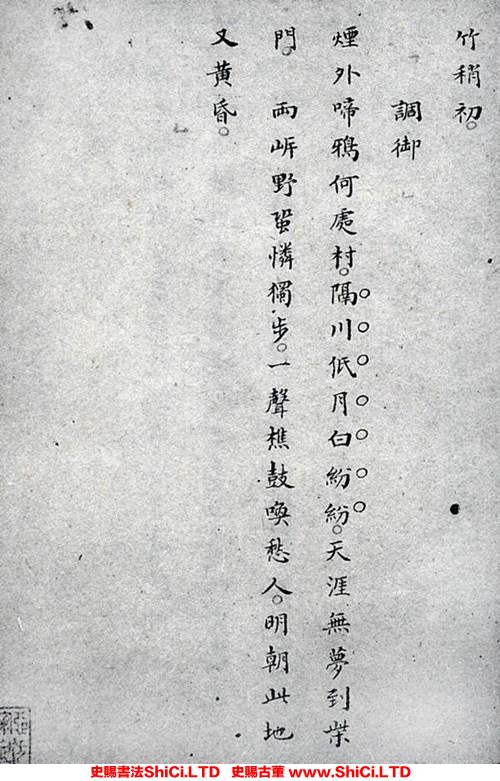 竹稍初。
調御
煙外啼鴉何處村。隔川低月白紛紛。天涯無夢到柴
門。 兩岸野蛩憐獨步。一聲樵鼓喚愁人。明朝此地
又黃昏。
史賜書法ShiCi.LTD 史賜古董 www.ShiCi.LTD